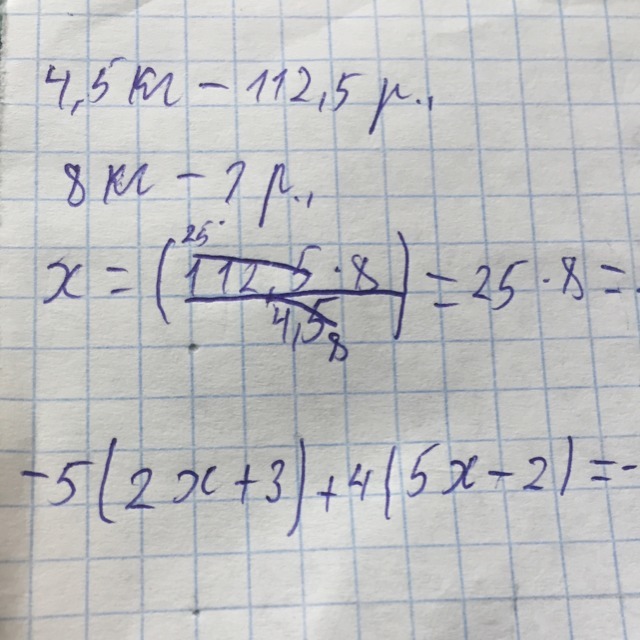 4,5 кг – 112,5 р.,
8 кг – ? р.,
x = (112,5 · 8 / 4,5) = 25 · 8 =
-5(2x+3)+4(5x-2)=-